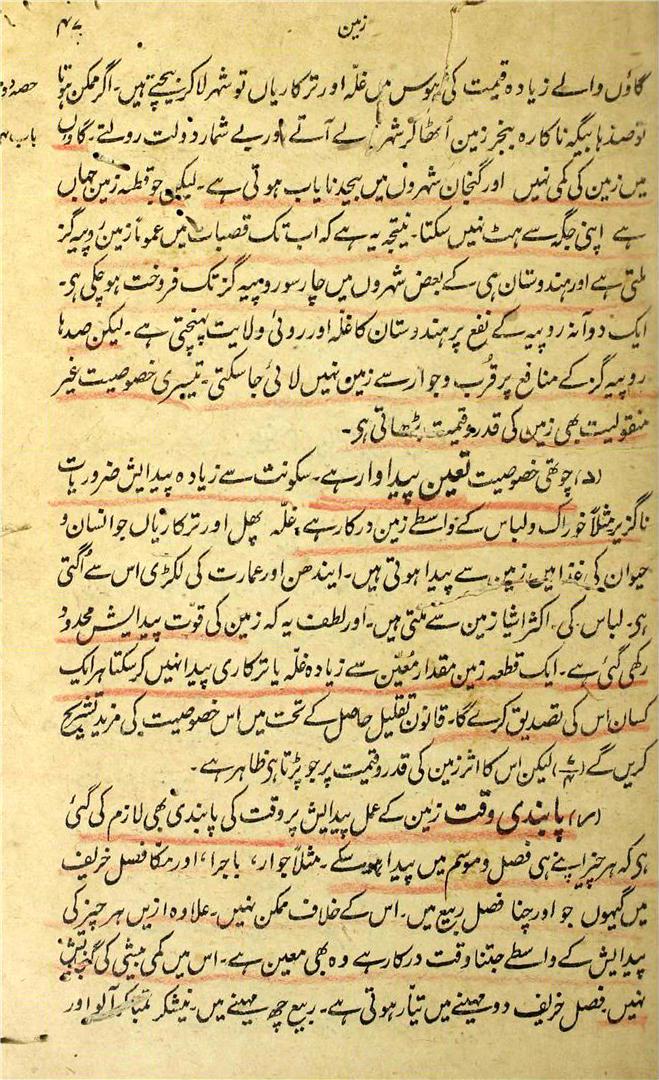 زمین
۴۷
حصہ دوم
باب ۴
گاؤں والے زیادہ قیمت کی ہوس میں غلّہ اور ترکاریاں تو شہر لاکر بیچتے ہیں۔ اگر ممکن ہوتا
تو صدہا بیگہ ناکارہ بنجر زمین اُٹھاکر شہر لے آتے اور بے شمار دولت رولتے۔ گاؤں
میں زمین کی کمی نہیں اور گنجان شہروں میں بیحد نایاب ہوتی ہے۔ لیکن جو قطعہ زمین جہاں
ہے اپنی جگہ سے ہٹ نہیں سکتا۔ نتیجہ یہ ہے کہ اب تک قصبات میں عموماً زمین روپیہ گز
ملتی ہے اور ہندوستان ہی کے بعض شہروں میں چار سو روپیہ گز تک فروخت ہوچکی ہی۔
ایک دو آنہ روپیہ کے نفع پر ہندوستان کا غلّہ اور روئی ولایت پہنچتی ہے۔ لیکن صدہا
روپیہ گز کے منافع پر قُرب و جوار سے زمین نہیں لائی جاسکتی۔ تیسری خصوصیت غیر
منقولیت بھی زمین کی قدر و قیمت بڑھاتی ہی۔
(د) چوتھی خصوصیت تعین پیداوار ہے۔ سکونت سے زیادہ پیدایش ضروریات
ناگزیر مثلاً خوراک و لباس کے واسطے زمین درکار ہے غلّہ پھل اور ترکاریاں جو انسان و
حیوان کی غذا ہیں زمین سے پیدا ہوتی ہیں۔ ایندھن اور عمارت کی لکڑی اس سے اُگتی
ہی۔ لباس کی اکثر اشیا زمین سے ملتی ہیں۔ اور لطف یہ کہ زمین کی قوّت پیدایش محدود
رکھی گئی ہے۔ ایک قطعہ زمین مقدار معُیّن سے زیادہ غلّہ یا ترکاری پیدا نہیں کرسکتا ہر ایک
کسان اس کی تصدیق کرے گا۔ قانون تقلیل حاصل کے تحت میں اس خصوصیت کی مزید تشریح
کریں گے لیکن اس کا اثر زمین کی قدر و قیمت پر جو پڑتا ہی ظاہر ہے۔
(ر) پابندی وقت زمین کے عمل پیدایش پر وقت کی پابندی بھی لازم کی گئی
ہی کہ ہر چیز اپنے ہی فصل و موسم میں پیدا ہوسکے۔ مثلاً جوار، باجرا، اور مکّا فصل خریف
میں گیہوں جو اور چنا فصل ربیع میں۔ اس کے خلاف ممکن نہیں۔ علاوہ ازیں ہر چیز کی
پیدایش کے واسطے جتنا وقت درکار ہے وہ بھی معین ہے۔ اس میں کمی بیشی کی گنجایش
نہیں۔ فصل خریف دو مہینے میں تیّار ہوتی ہے۔ ربیع چھ مہینے میں۔ نیشکر تمباکو آلو اور